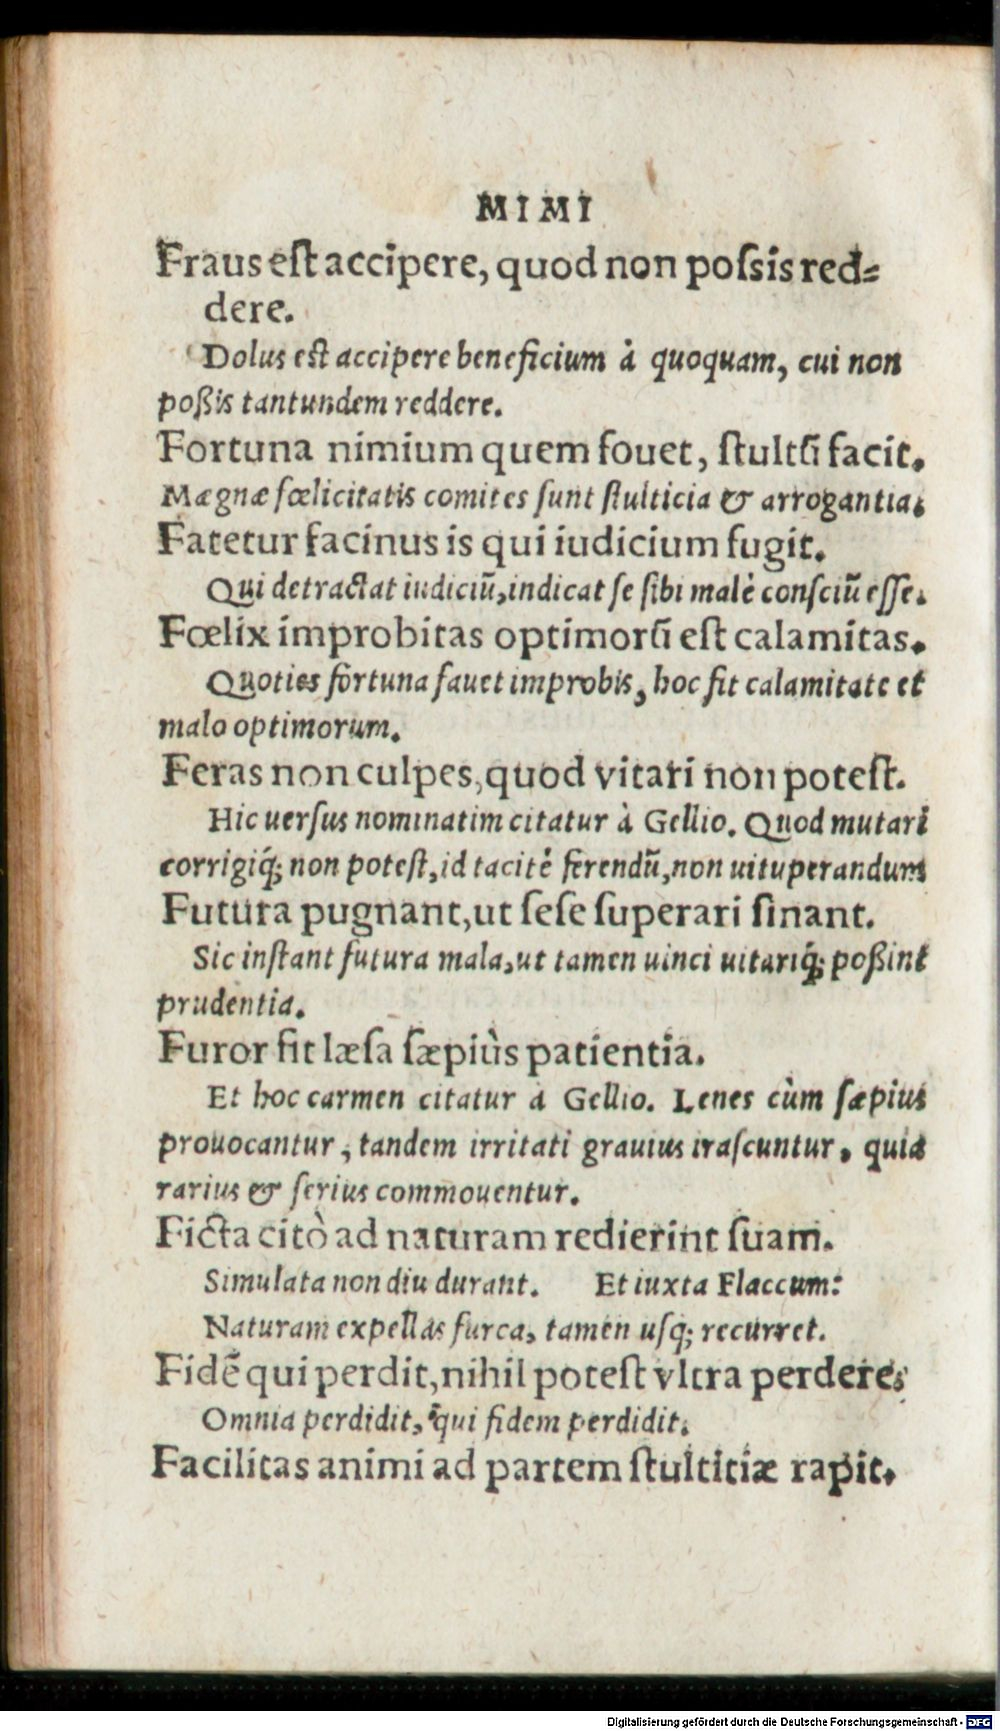 MIMI
Fraus est accipere, quod non possis red=
dere.
Dolus est accipere beneficium à quoquam, cui non
poßis tantundem reddere.
Fortuna nimium quem fouet, stultū facit.
Magnæ fœlicitatis comites sunt stulticia & arrogantia.
Fatetur facinus is qui iudicium fugit.
Qui detractat iudiciū, indicat se sibi malè consciū esse.
Fœlix improbitas optimorū est calamitas.
Quoties fortuna fauet improbis, hoc fit calamitate et
malo optimorum.
Feras non culpes, quod vitari non potest.
Hic uersus nominatim citatur à Gellio. Quod mutari
corrigiq́; non potest, id tacitè ferendū, non uituperandum
Futura pugnant, ut sese superari sinant.
Sic instant futura mala, ut tamen uinci uitariq́; poßint
prudentia.
Furor fit læsa sæpiùs patientia.
Et hoc carmen citatur à Gellio. Lenes cùm sæpius
prouocantur, tandem irritati grauius irascuntur, quia
rarius & serius commouentur.
Ficta citò ad naturam redierint suam.
Simulata non diu durant. Et iuxta Flaccum:
Naturam expellas furca, tamen usq; recurret.
Fidē qui perdit, nihil potest vltra perdere.
Omnia perdidit, qui fidem perdidit.
Facilitas animi ad partem stulticiæ rapit.
Digitalisierung gefördert durch die Deutsche Forschungsgemeinschaft - DFG